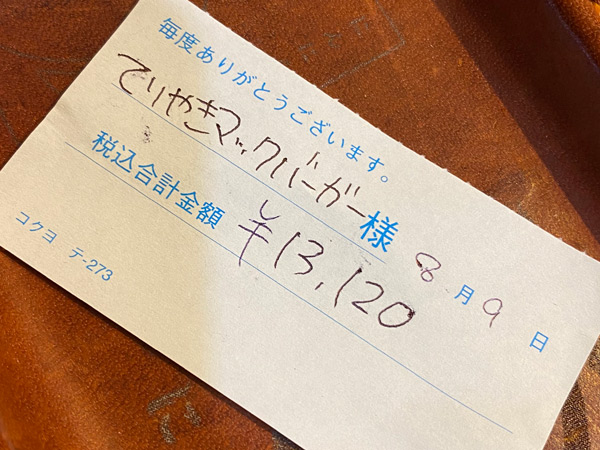 毎度ありがとうございます。
てりやきマックバーガー様
税込合計金額 ¥13,120
8月9日
コクヨ テ-273